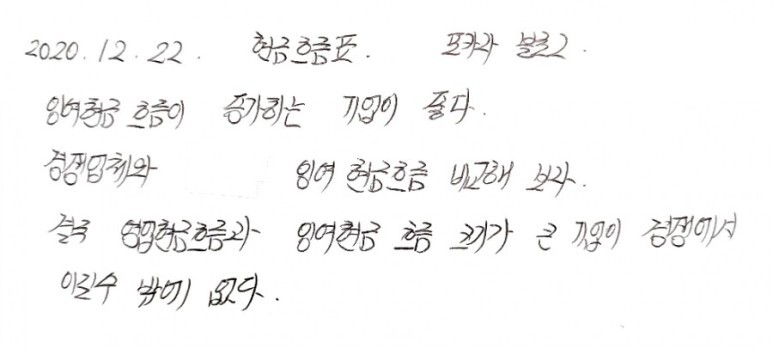 2020. 12. 22. 현금흐름표. 포카라 블로그.
잉여현금 흐름이 증가하는 기업이 좋다.
경쟁업체와 잉여 현금흐름 비교해 보라.
결국 영업현금흐름과 잉여현금 흐름 크기가 큰 기업이 경쟁에서
이길수 밖에 없다.